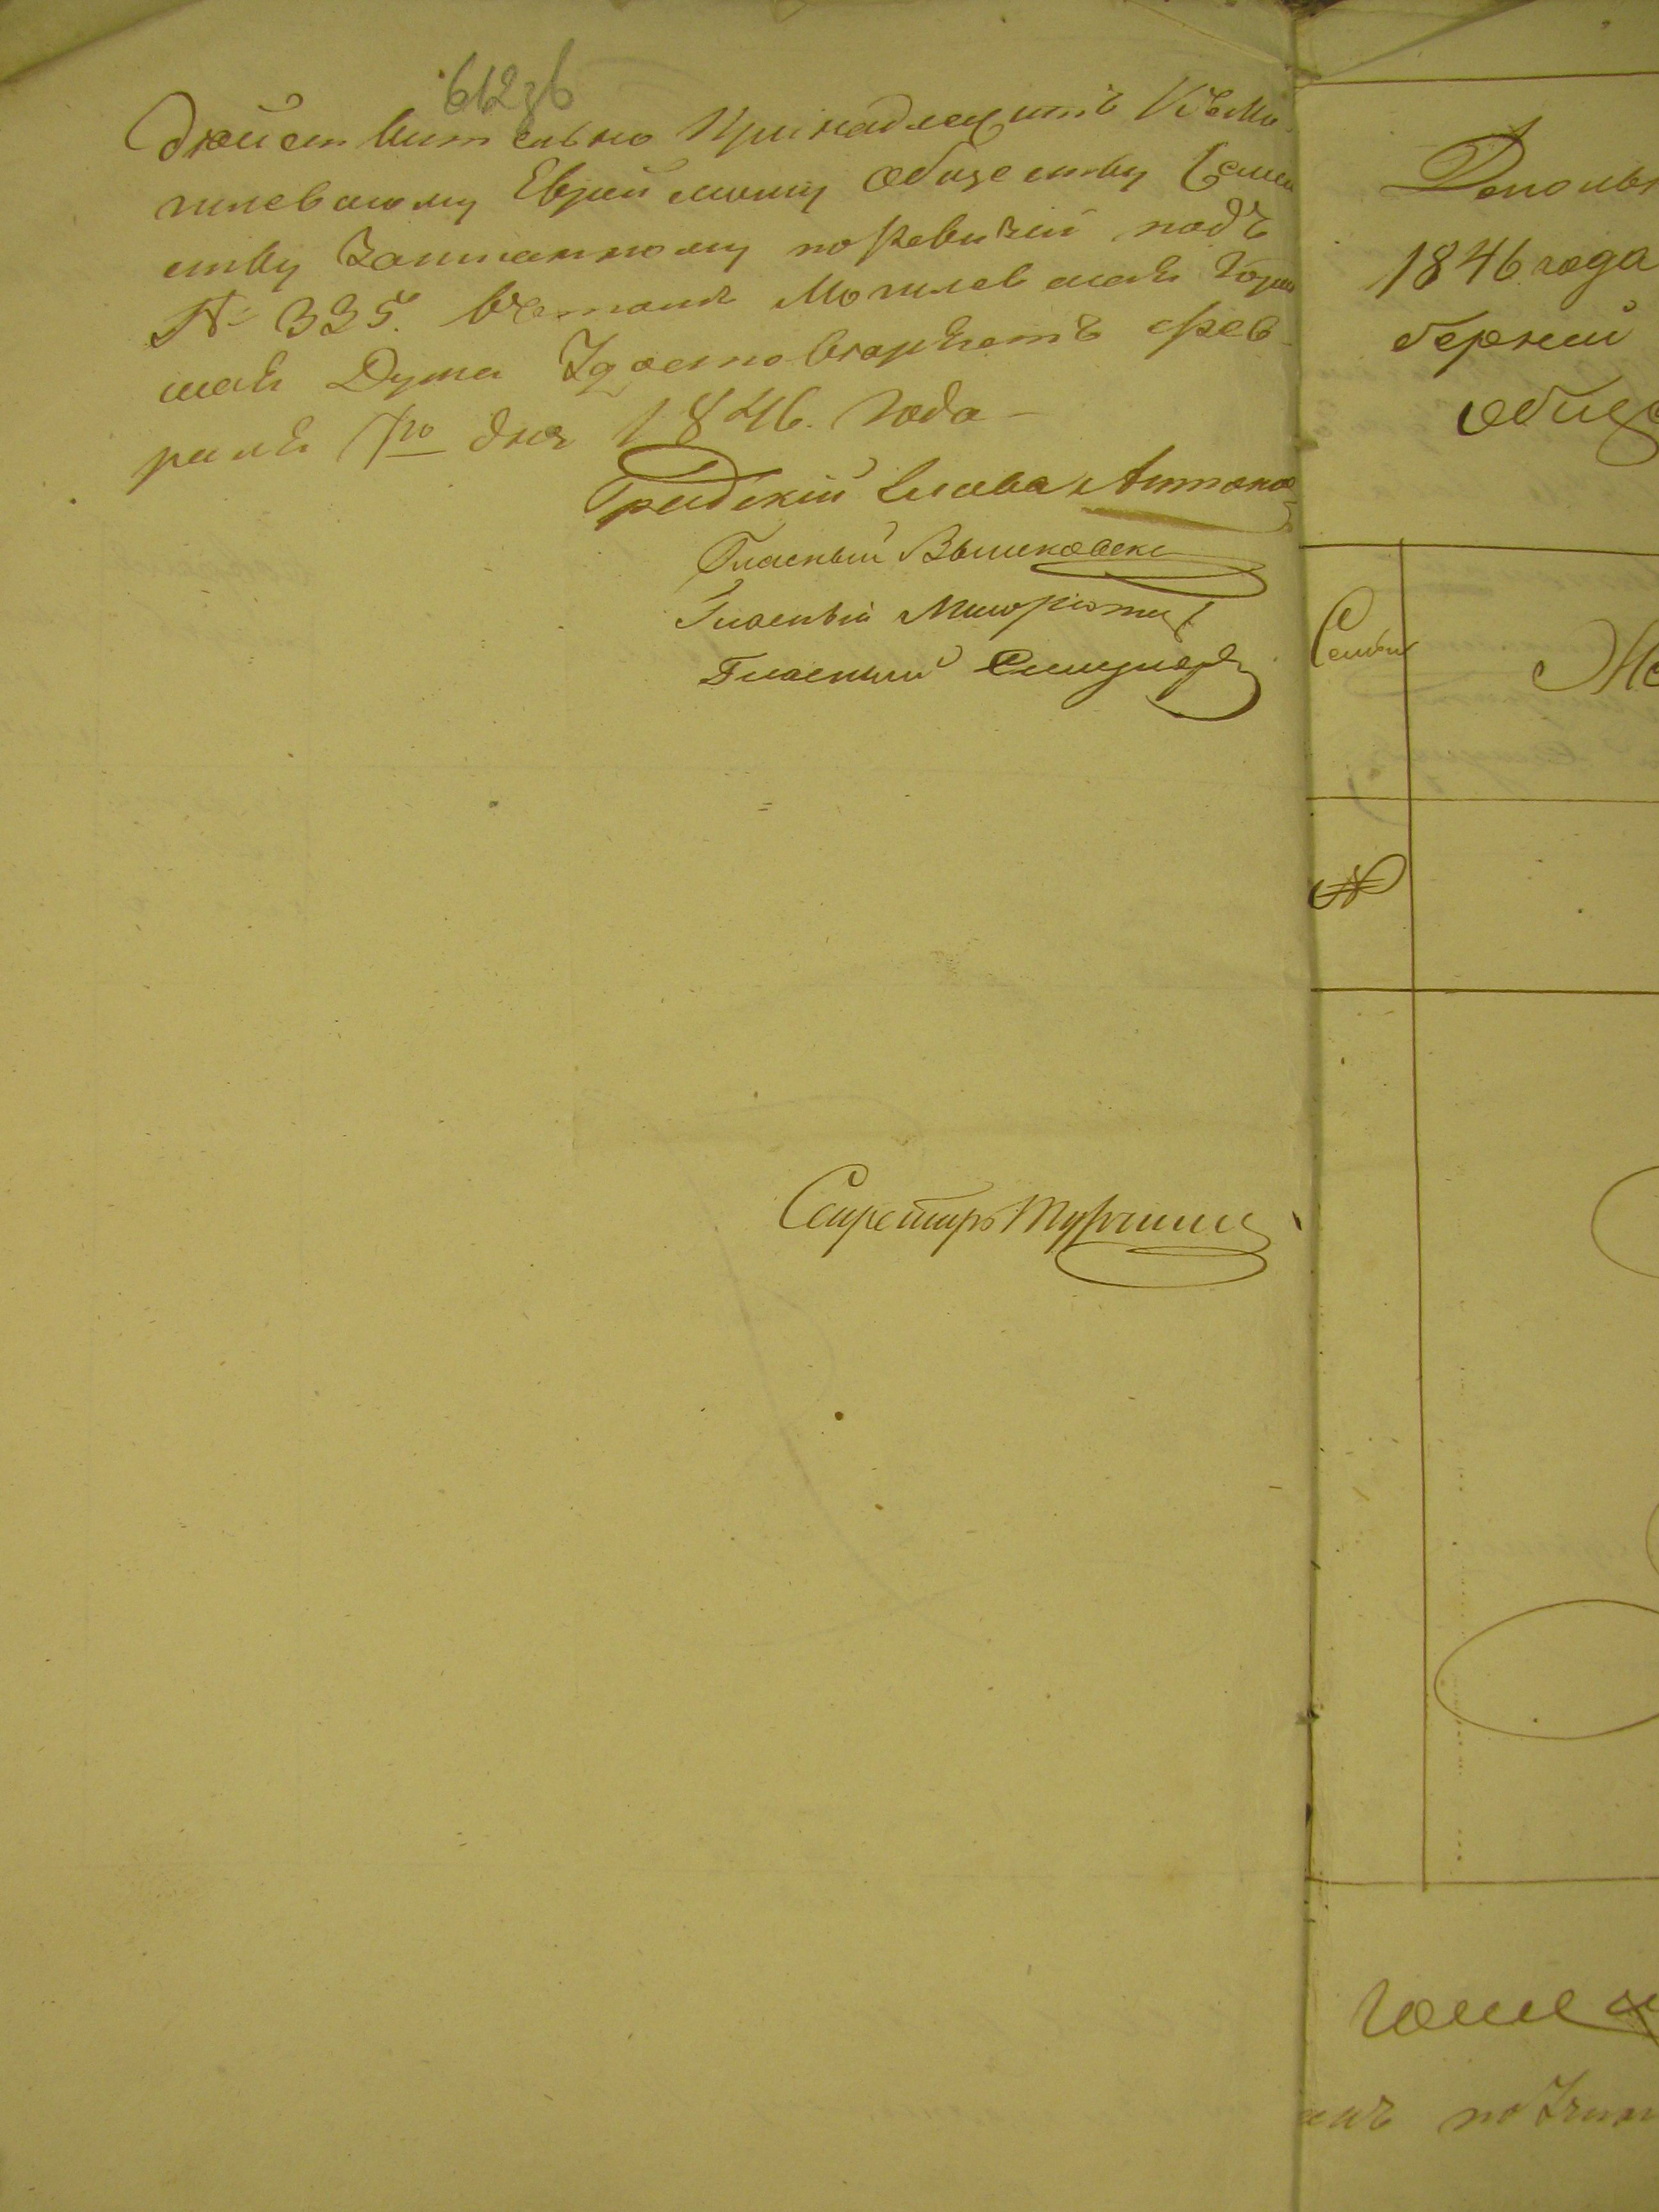 612 зв
действительно принадлежитъ Къ Мо-
гилевскому Еврейскому обществу Семей
ству Записанному по Ревизіи подъ
№ 335. въ томъ Могилевская Город
ская Дума Удостовѣряетъ Фев-
раля 1го дня 1846. Года
Градскій Глава Антоно
Гласный Вышковск
Гласный
Гласный
Секретарь
Дополн
1846 года
берніи
Общес
Семьи
Мо
№